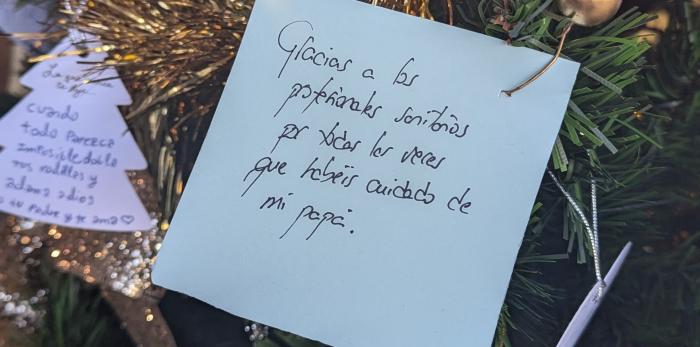 Gracias a los
profesionales sanitarios
por todas las veces
que habéis cuidado de
mi papá.
cuando
todo parezca
imposible dobla
tus rodillas y
adora a dios
tu Padre y te ama